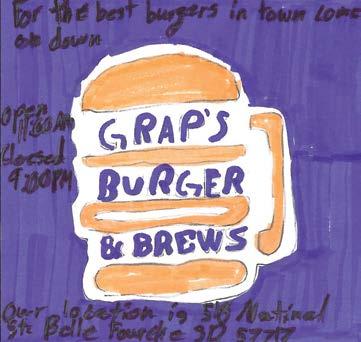 For the best burgers in town come
on down
Open
11:00 AM
GRAP'S
Closed
9:00PM
BURGER
& BREWS
Our location is 512 National
St. Belle Fourche SD 57717